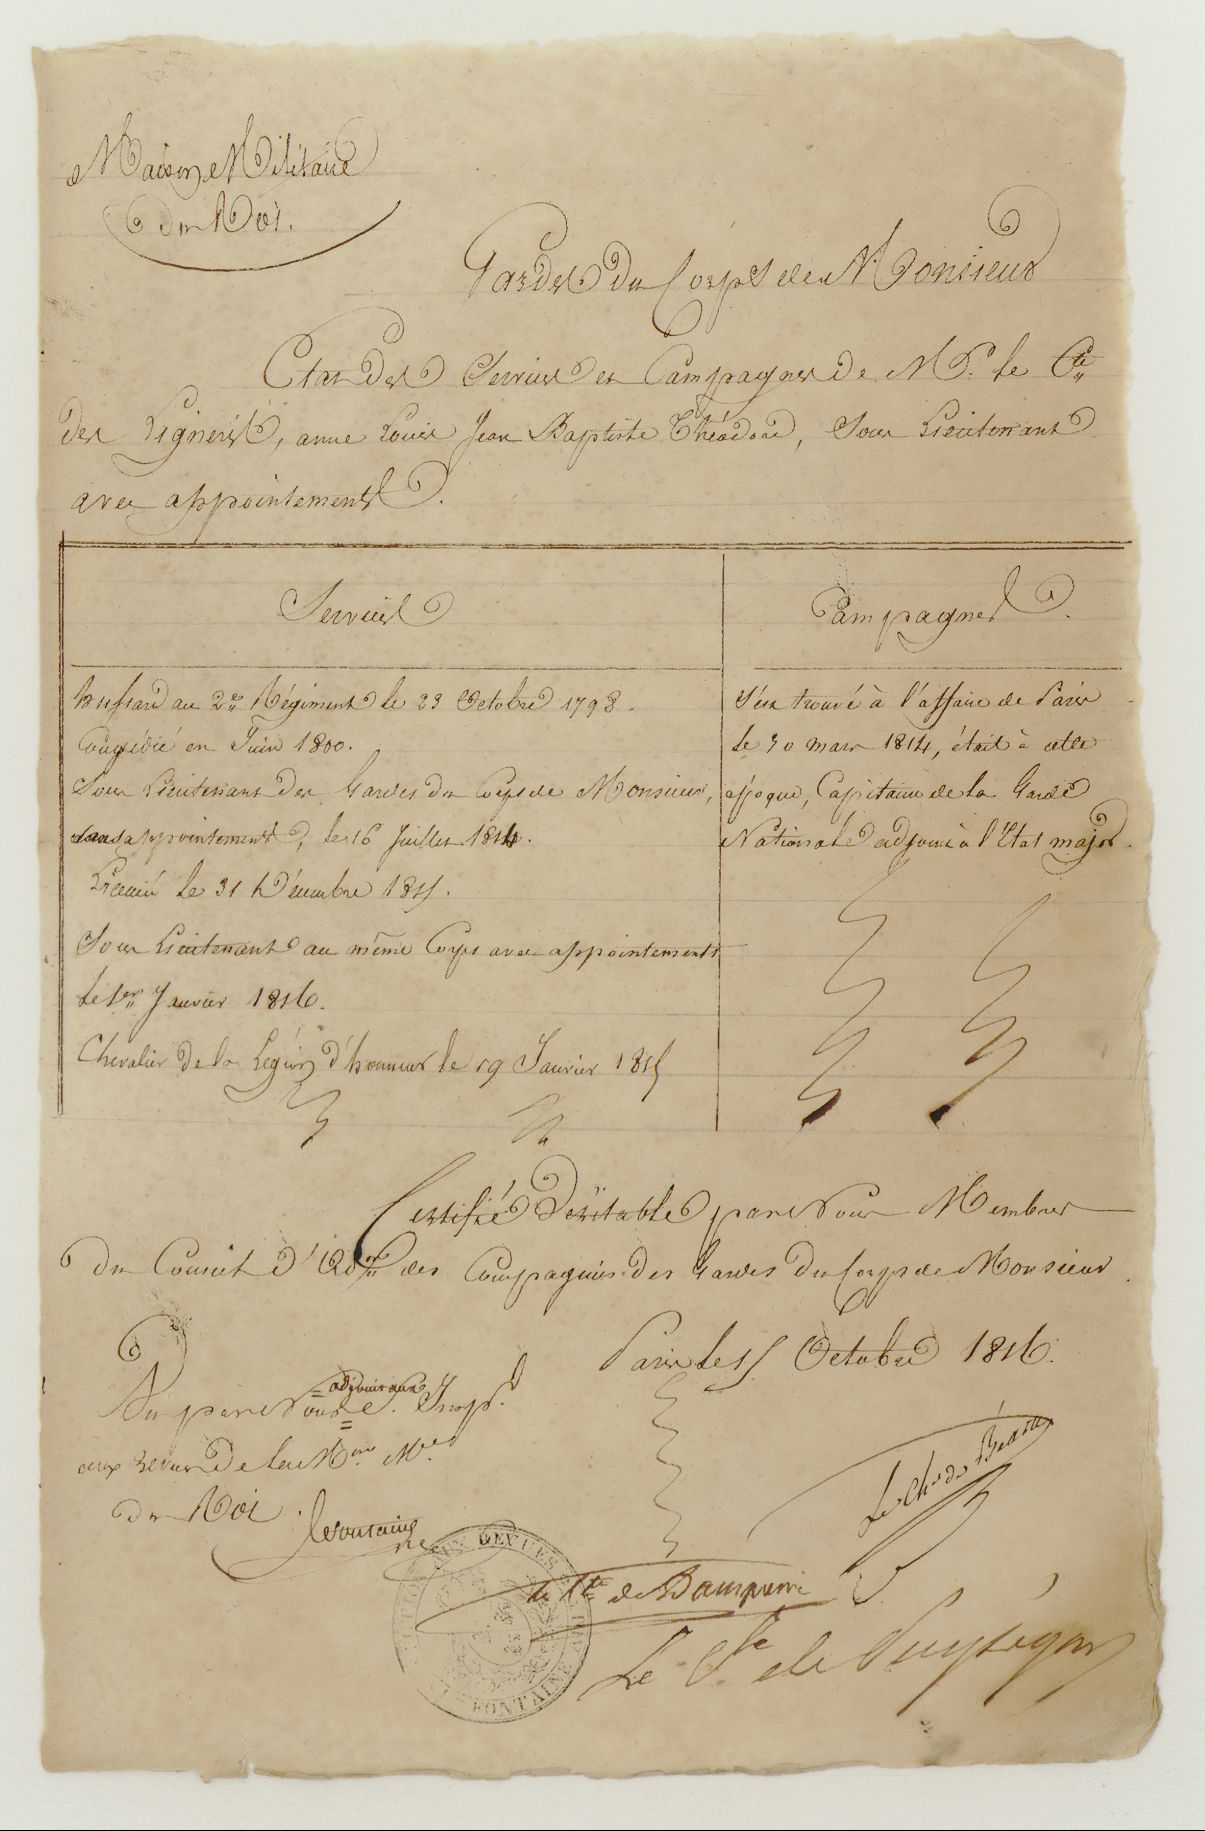 Maison Militaire
du Roi.
Gardes du Corps de Monsieur
Etat des Services et Campagnes de Mr. le Cte
des Ligneris, anne Louis Jean Baptiste Théodore, Sous Lieutenant
avec appointements.
Services
Campagnes.
hussard au 2e Régiment le 23 Octobre 1798.
Congédié en Juin 1800.
Sous Lieutenant des Gardes du Corps de Monsieur,
sans appointements, le 16 Juillet 1814.
Licencié le 31 Décembre 1815.
Sous Lieutenant au même Corps avec appointements
le 1er Janvier 1816.
Chevalier de la Légion d'honneur le 19 Janvier 1815
S'est trouvé à l'affaire de Paris
le 30 mars 1814, était à cette
époque, Capitaine de la Garde
Nationale adjoint à l'Etat major.
Certifié Véritable par Nous Membres
du Conseil d'Adon des Compagnies des Gardes du Corps de Monsieur.
Paris le 15 Octobre 1816.
Vu par Nous S. Insp.
adjoint aux
aux revues de la Mon Mre
du Roi.
Lafontaine
Le Cher de Béarn
le Cte de Dampierre
Le Cte de Puységur
AUX REVUES
FONTAINE